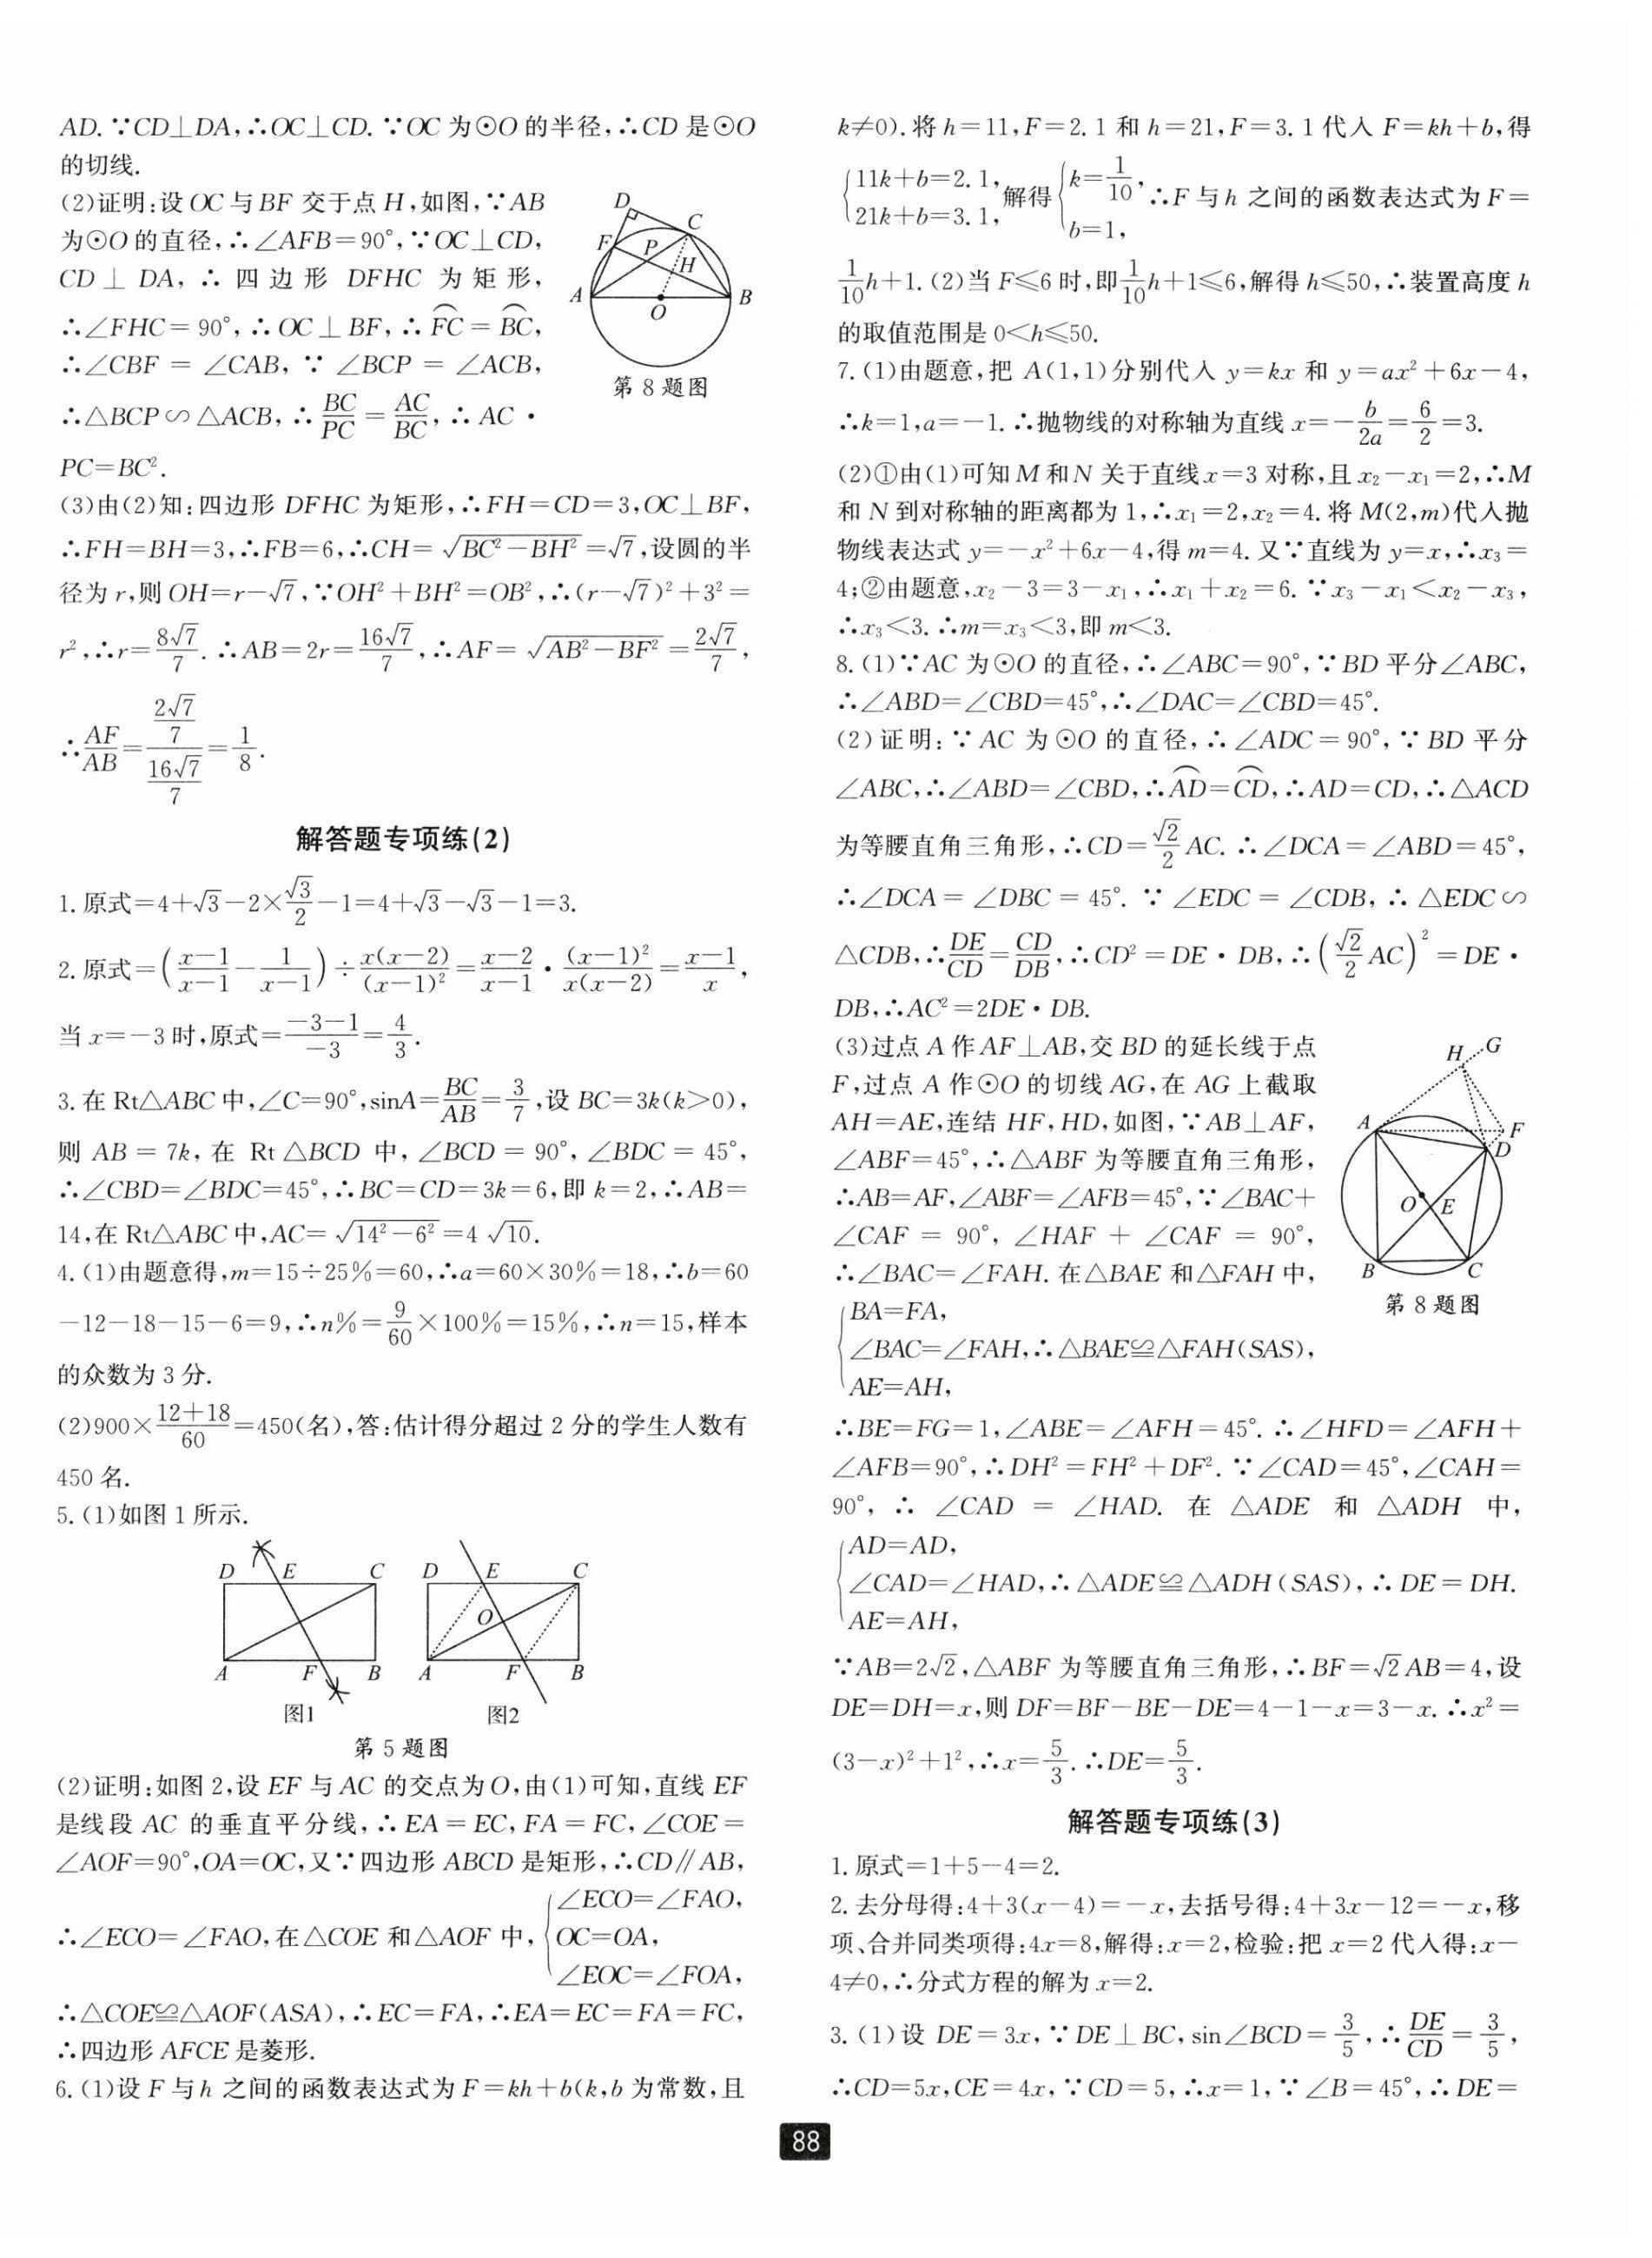 AD. ∵CD⊥DA,∴OC⊥CD. ∵OC为⊙O的半径,∴CD是⊙O
的切线.
(2)证明:设OC与BF交于点H,如图,∵AB
为⊙O的直径,∴∠AFB=90°,∵OC⊥CD,
CD⊥DA,∴四边形DFHC为矩形,
∴∠FHC=90°,∴OC⊥BF,∴$\overset{\frown}{FC}$=$\overset{\frown}{BC}$,
∴∠CBF=∠CAB,∵∠BCP=∠ACB,
∴△BCP∽△ACB,∴$\frac{BC}{PC}=\frac{AC}{BC}$,∴AC·
PC=BC².
D
C
F
P
H
A
B
O
第8题图
(3)由(2)知:四边形DFHC为矩形,∴FH=CD=3,OC⊥BF,
∴FH=BH=3,∴FB=6,∴CH=$\sqrt{BC^2-BH^2}=\sqrt{7}$,设圆的半
径为r,则OH=r-$\sqrt{7}$,∵OH²+BH²=OB²,∴(r-$\sqrt{7}$)²+3²=
r²,∴r=$\frac{8\sqrt{7}}{7}$. ∴AB=2r=$\frac{16\sqrt{7}}{7}$,∴AF=$\sqrt{AB^2-BF^2}=\frac{2\sqrt{7}}{7}$,
∴$\frac{AF}{AB}=\frac{\frac{2\sqrt{7}}{7}}{\frac{16\sqrt{7}}{7}}=\frac{1}{8}$.
解答题专项练(2)
1.原式=4+$\sqrt{3}$-2×$\frac{\sqrt{3}}{2}$-1=4+$\sqrt{3}$-$\sqrt{3}$-1=3.
2.原式=$\left(\frac{x-1}{x-1}-\frac{1}{x-1}\right)÷\frac{x(x-2)}{(x-1)^2}=\frac{x-2}{x-1}·\frac{(x-1)^2}{x(x-2)}=\frac{x-1}{x}$,
当x=-3时,原式=$\frac{-3-1}{-3}=\frac{4}{3}$.
3.在Rt△ABC中,∠C=90°,sinA=$\frac{BC}{AB}=\frac{3}{7}$,设BC=3k(k>0),
则AB=7k,在Rt△BCD中,∠BCD=90°,∠BDC=45°,
∴∠CBD=∠BDC=45°,∴BC=CD=3k=6,即k=2,∴AB=
14,在Rt△ABC中,AC=$\sqrt{14^2-6^2}=4\sqrt{10}$.
4.(1)由题意得,m=15÷25%=60,∴a=60×30%=18,∴b=60
-12-18-15-6=9,∴n%=$\frac{9}{60}$×100%=15%,∴n=15,样本
的众数为3分.
(2)900×$\frac{12+18}{60}$=450(名),答:估计得分超过2分的学生人数有
450名.
5.(1)如图1所示.
D E C
A F B
图1
D E C
O
A F B
图2
第5题图
(2)证明:如图2,设EF与AC的交点为O,由(1)可知,直线EF
是线段AC的垂直平分线,∴EA=EC,FA=FC,∠COE=
∠AOF=90°,OA=OC,又∵四边形ABCD是矩形,∴CD∥AB,
∴∠ECO=∠FAO,在△COE和△AOF中,$\begin{cases}∠ECO=∠FAO,\\OC=OA,\\∠EOC=∠FOA,\end{cases}$
∴△COE≌△AOF(ASA),∴EC=FA,∴EA=EC=FA=FC,
∴四边形AFCE是菱形.
6.(1)设F与h之间的函数表达式为F=kh+b(k,b为常数,且
k≠0).将h=11,F=2.1和h=21,F=3.1代入F=kh+b,得
$\begin{cases}11k+b=2.1,\\21k+b=3.1,\end{cases}$解得$\begin{cases}k=\frac{1}{10},\\b=1,\end{cases}$∴F与h之间的函数表达式为F=
$\frac{1}{10}$h+1.(2)当F≤6时,即$\frac{1}{10}$h+1≤6,解得h≤50,∴装置高度h
的取值范围是0<h≤50.
7.(1)由题意,把A(1,1)分别代入y=kx和y=ax²+6x-4,
∴k=1,a=-1.∴抛物线的对称轴为直线x=-$\frac{b}{2a}=\frac{6}{2}$=3.
(2)①由(1)可知M和N关于直线x=3对称,且x₂-x₁=2,∴M
和N到对称轴的距离都为1,∴x₁=2,x₂=4.将M(2,m)代入抛
物线表达式y=-x²+6x-4,得m=4.又∵直线为y=x,∴x₃=
4;②由题意,x₂-3=3-x₁,∴x₁+x₂=6.∵x₃-x₁<x₂-x₃,
∴x₃<3.∴m=x₃<3,即m<3.
8.(1)∵AC为⊙O的直径,∴∠ABC=90°,∵BD平分∠ABC,
∴∠ABD=∠CBD=45°,∴∠DAC=∠CBD=45°.
(2)证明:∵AC为⊙O的直径,∴∠ADC=90°,∵BD平分
∠ABC,∴∠ABD=∠CBD,∴$\overset{\frown}{AD}$=$\overset{\frown}{CD}$,∴AD=CD,∴△ACD
为等腰直角三角形,∴CD=$\frac{\sqrt{2}}{2}$AC.∴∠DCA=∠ABD=45°,
∴∠DCA=∠DBC=45°.∵∠EDC=∠CDB,∴△EDC∽
△CDB,∴$\frac{DE}{CD}=\frac{CD}{DB}$,∴CD²=DE·DB,∴$\left(\frac{\sqrt{2}}{2}AC\right)^2$=DE·
DB,∴AC²=2DE·DB.
(3)过点A作AF⊥AB,交BD的延长线于点
F,过点A作⊙O的切线AG,在AG上截取
AH=AE,连结HF,HD,如图,∵AB⊥AF,
∠ABF=45°,∴△ABF为等腰直角三角形,
∴AB=AF,∠ABF=∠AFB=45°,∵∠BAC+
∠CAF=90°,∠HAF+∠CAF=90°,
∴∠BAC=∠FAH.在△BAE和△FAH中,
$\begin{cases}BA=FA,\\∠BAC=∠FAH,\\AE=AH,\end{cases}$∴△BAE≌△FAH(SAS),
H G
A
F
D
O E
B
C
第8题图
∴BE=FG=1,∠ABE=∠AFH=45°.∴∠HFD=∠AFH+
∠AFB=90°,∴DH²=FH²+DF².∵∠CAD=45°,∠CAH=
90°,∴∠CAD=∠HAD.在△ADE和△ADH中,
$\begin{cases}AD=AD,\\∠CAD=∠HAD,\\AE=AH,\end{cases}$∴△ADE≌△ADH(SAS),∴DE=DH.
∵AB=2$\sqrt{2}$,△ABF为等腰直角三角形,∴BF=$\sqrt{2}$AB=4,设
DE=DH=x,则DF=BF-BE-DE=4-1-x=3-x.∴x²=
(3-x)²+1²,∴x=$\frac{5}{3}$.∴DE=$\frac{5}{3}$.
解答题专项练(3)
1.原式=1+5-4=2.
2.去分母得:4+3(x-4)=-x,去括号得:4+3x-12=-x,移
项、合并同类项得:4x=8,解得:x=2,检验:把x=2代入得:x-
4≠0,∴分式方程的解为x=2.
3.(1)设DE=3x,∵DE⊥BC,sin∠BCD=$\frac{3}{5}$,∴$\frac{DE}{CD}=\frac{3}{5}$,
∴CD=5x,CE=4x,∵CD=5,∴x=1,∵∠B=45°,∴DE=
88